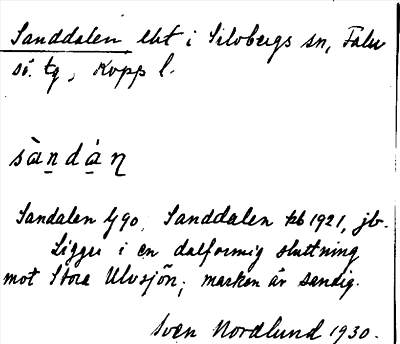 Sanddalen lht i Silvbergs sn, Falu
sö. tg, Kopp l.
sàndán
Sandalen 1790, Sanddalen kb 1921, jb.
Ligger i en dalformig sluttning
mot Stora Ulvsjön; marken är sandig.
Sven Nordlund 1930.